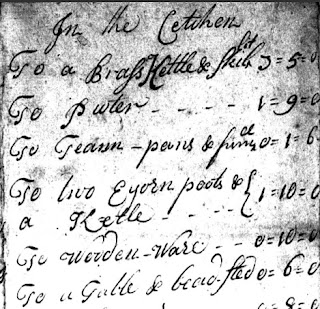 In the Cetchen
To a Brass Kettle & Skilit 3=5=0
To Puter - - - - 1=9=0
To Teann-pans & 0=1=6
To two Eyorn poots & { 1=10=0
a Ketle - - - - -
To wooden-Ware - - 0=10=0
To a Table & beadsted 0=6=0
=8=0